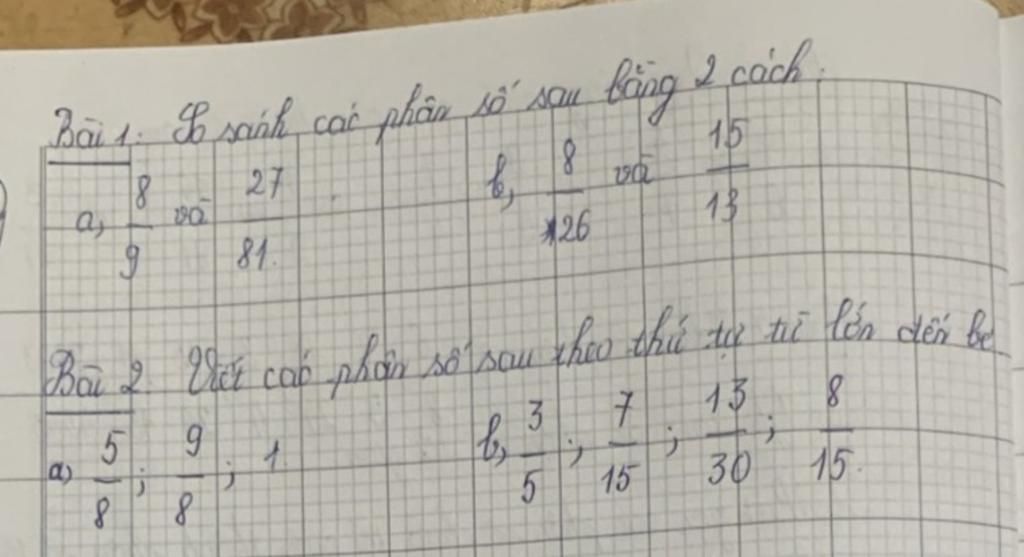 Bài 1. So sánh các phân số sau bằng 2 cách.
a, 8/9 và 27/81. b, 8/26 và 15/13
Bài 2. Viết các phân số sau theo thứ tự từ lớn đến bé
a) 5/8; 9/8; 1. b, 3/5; 7/15; 13/30; 8/15.